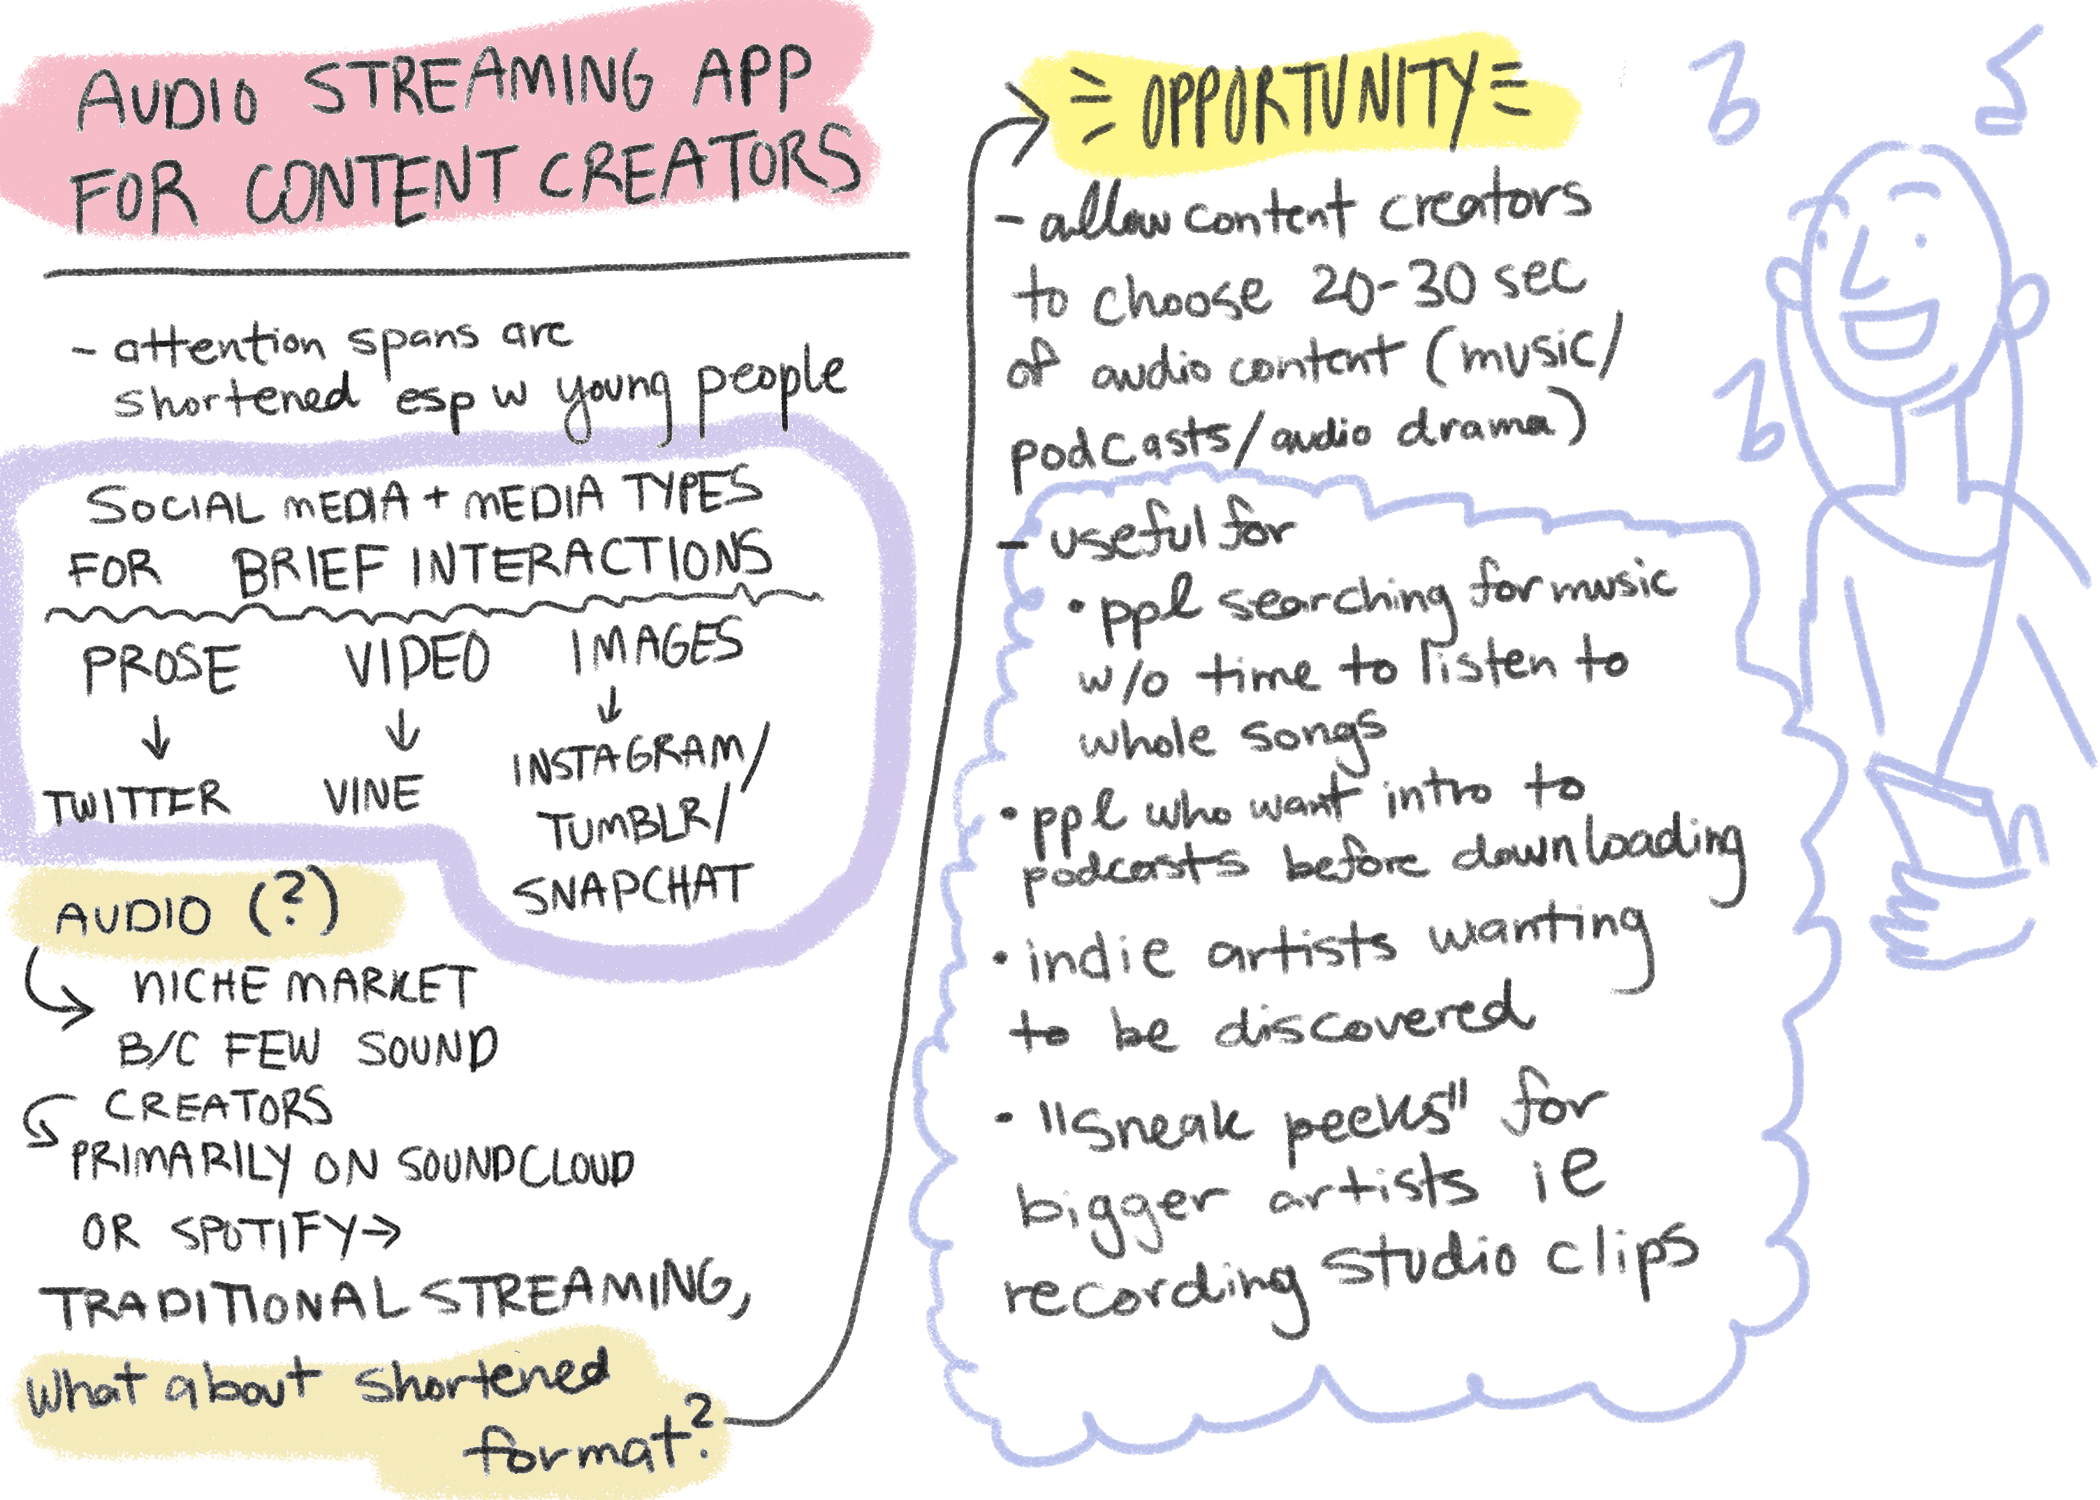 AUDIO STREAMING APP
FOR CONTENT CREATORS
- attention spans are
shortened esp w young people
SOCIAL MEDIA + MEDIA TYPES
FOR BRIEF INTERACTIONS
PROSE VIDEO IMAGES
TWITTER VINE INSTAGRAM/
TUMBLR/
SNAPCHAT
AUDIO (?)
NICHE MARKET
B/C FEW SOUND
CREATORS
PRIMARILY ON SOUNDCLOUD
OR SPOTIFY →
TRADITIONAL STREAMING,
what about shortened
format?
OPPORTUNITY
- allow content creators
to choose 20-30 sec
of audio content (music/
podcasts/audio drama)
- useful for
• ppl searching for music
w/o time to listen to
whole songs
• ppl who want intro to
podcasts before downloading
• indie artists wanting
to be discovered
• "sneak peeks" for
bigger artists ie
recording studio clips